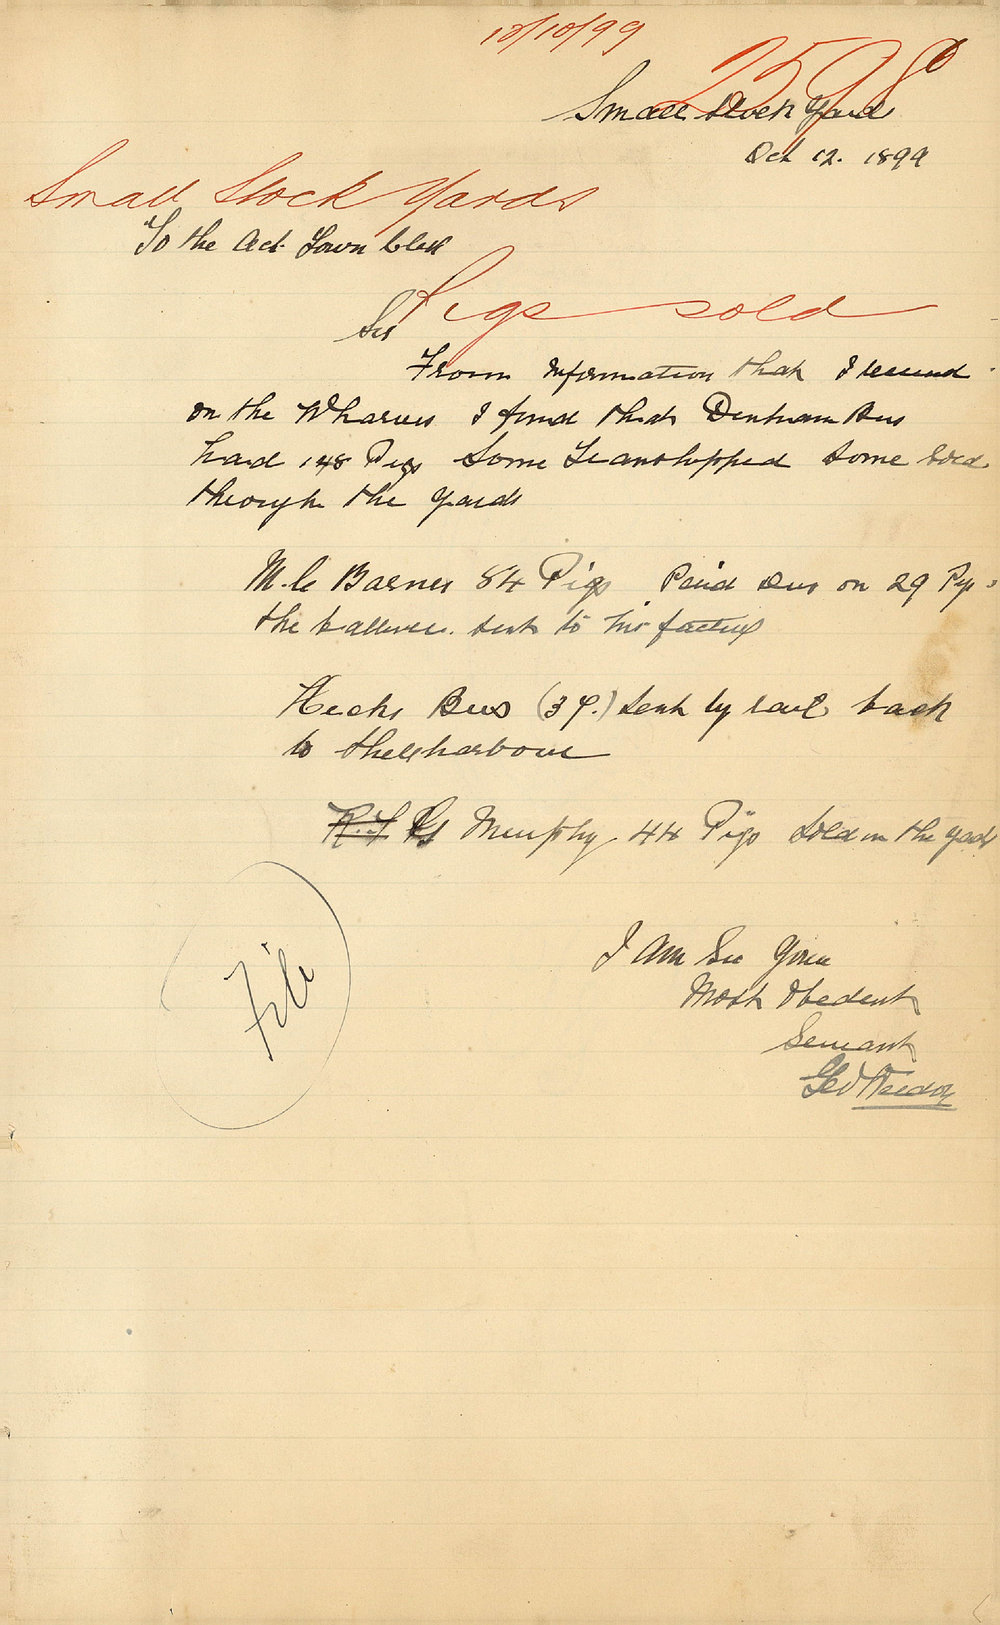 12/10/99
2598
Small Stock Yards
Oct 12. 1899
Small Stock Yards
To the Act Town Clerk
Pigs sold
Sir
From Information that I received
on the Wharves I find that Denham Bros
had 148 Pigs Some Transhipped Some Sold
through the Yards
M.C Barnes 84 Pigs Paid Dues on 29 Pigs
the ballance. sent to his factory
Hecks Bros (39.) sent by rail back
to harbour
Murphy 44 Pigs Sold in the yards
I Am Sir Your
Most Obedent
Servant
Geo
File